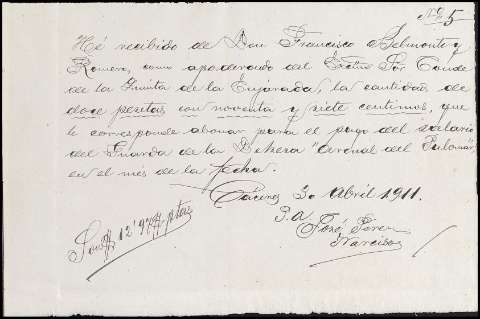 Nº 5
Hé recibido de Don Francisco Belmonte y
Romero, como apoderado del Excmo Sor Conde
de la Quinta de la Enjarada, la cantidad de
doce pesetas con noventa y siete centimos, que
le corresponde abonar para el pago del salario
del Guarda de la Dehesa "Arenal del Palomar"
en el mes de la fecha.
Cáceres 30 Abril 1911.
P. A.
José Perez
Narciso
Son # 12'97 # ptas